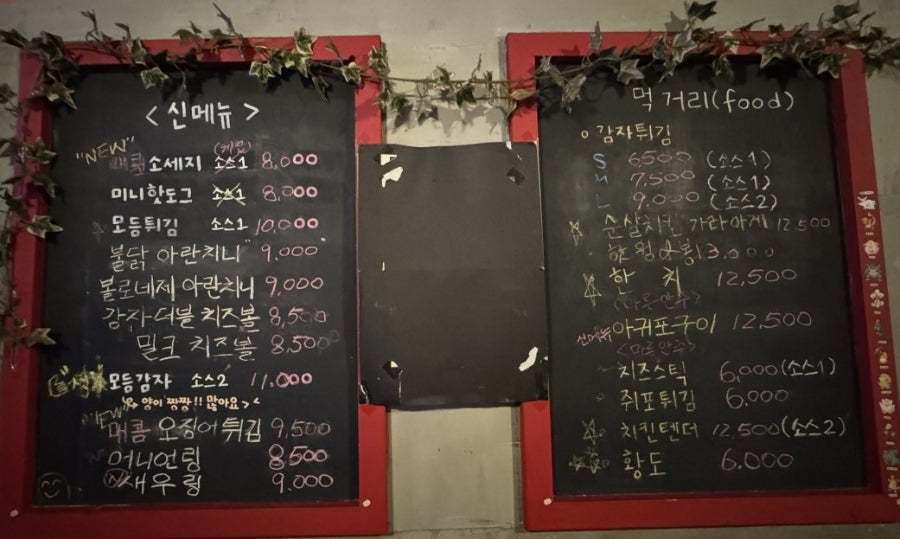 <신메뉴>
"NEW"
(케찹)
매콤 소세지 소스1 8,000
미니핫도그 소스1 8,000
모듬튀김 소스1 10,000
불닭 아란치니 9,000
볼로네제 아란치니 9,000
감자더블 치즈볼 8,500
밀크 치즈볼 8,500
모듬감자 소스2 11,000
양이 짱짱!! 많아요><
"NEW"
매콤 오징어튀김 9,500
어니언링 8,500
N 새우링 9,000
먹거리(food)
감자튀김
S 6500 (소스1)
M 7,500 (소스1)
L 9,000 (소스2)
순살치킨 가라아게 12500
13,000
한치 12,500
<마른안주>
신메뉴 아귀포구이 12,500
<마른안주>
치즈스틱 6,000 (소스1)
쥐포튀김 6,000
치킨텐더 12,500 (소스2)
황도 6,000